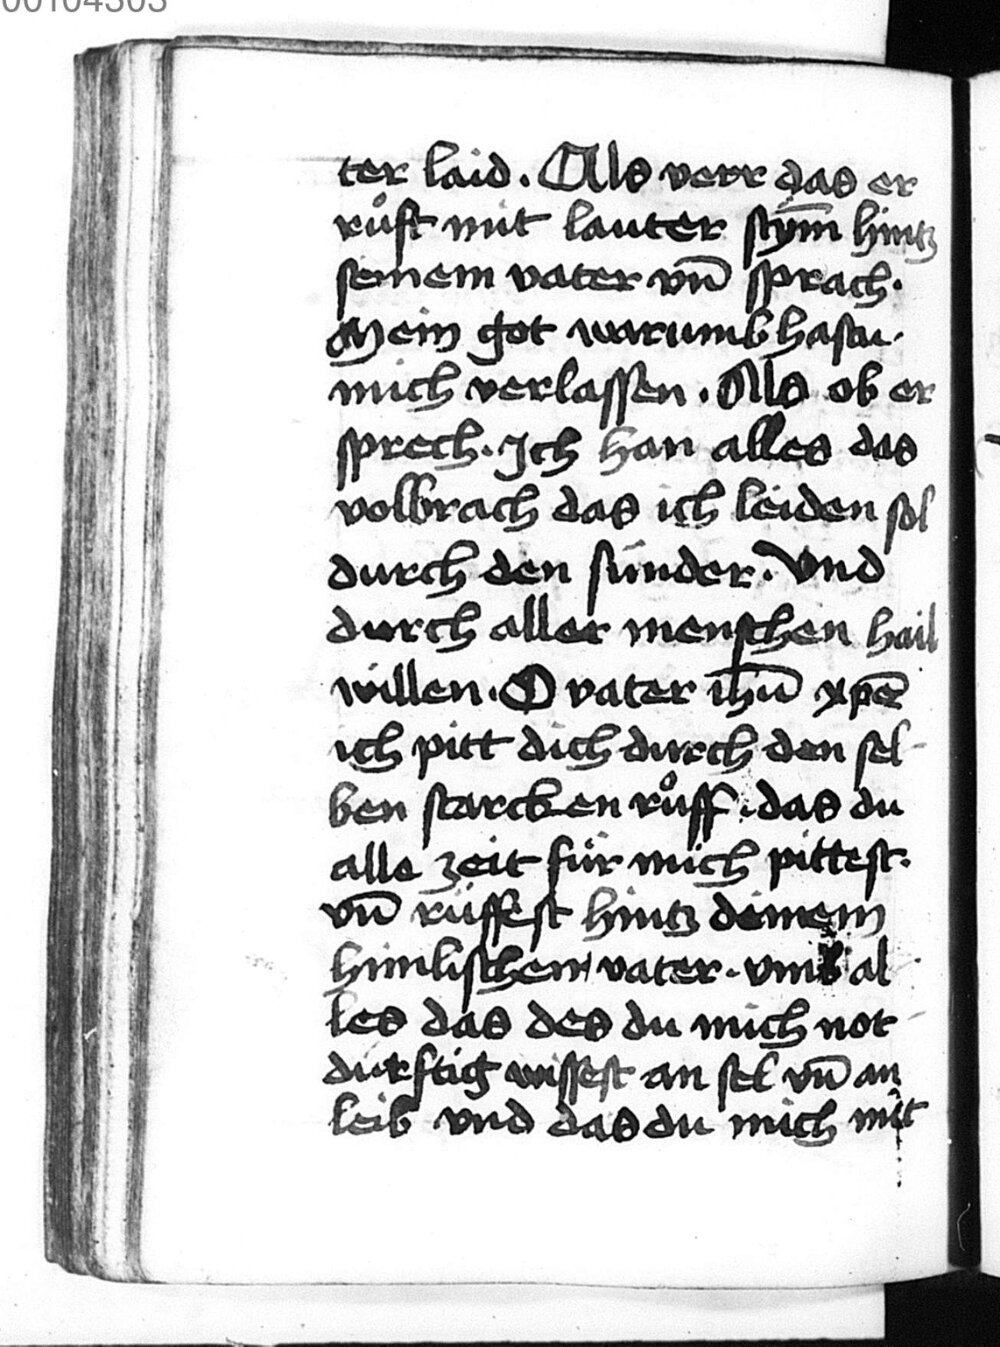 00104303
ter laid. Als verr das er
růft mit lauter stym̄ hintz
seinem vater vn̄ sprach.
Mein got warumb hastu
mich verlassen. Als ob er
sprech. Ich han alles das
volbrach das ich leiden sol
durch den sünder. Vnd
durch aller menschen hail
willen. O vater ih̄u xp̄e
ich pitt dich durch den sel
ben starcken růff. das du
alle zeit für mich pittest.
vn̄ rüffest hintz deinem
himlischen vater. vmb al
les das des du mich not
dürftig wissest an sel vn̄ an
leib vnd das du mich mit